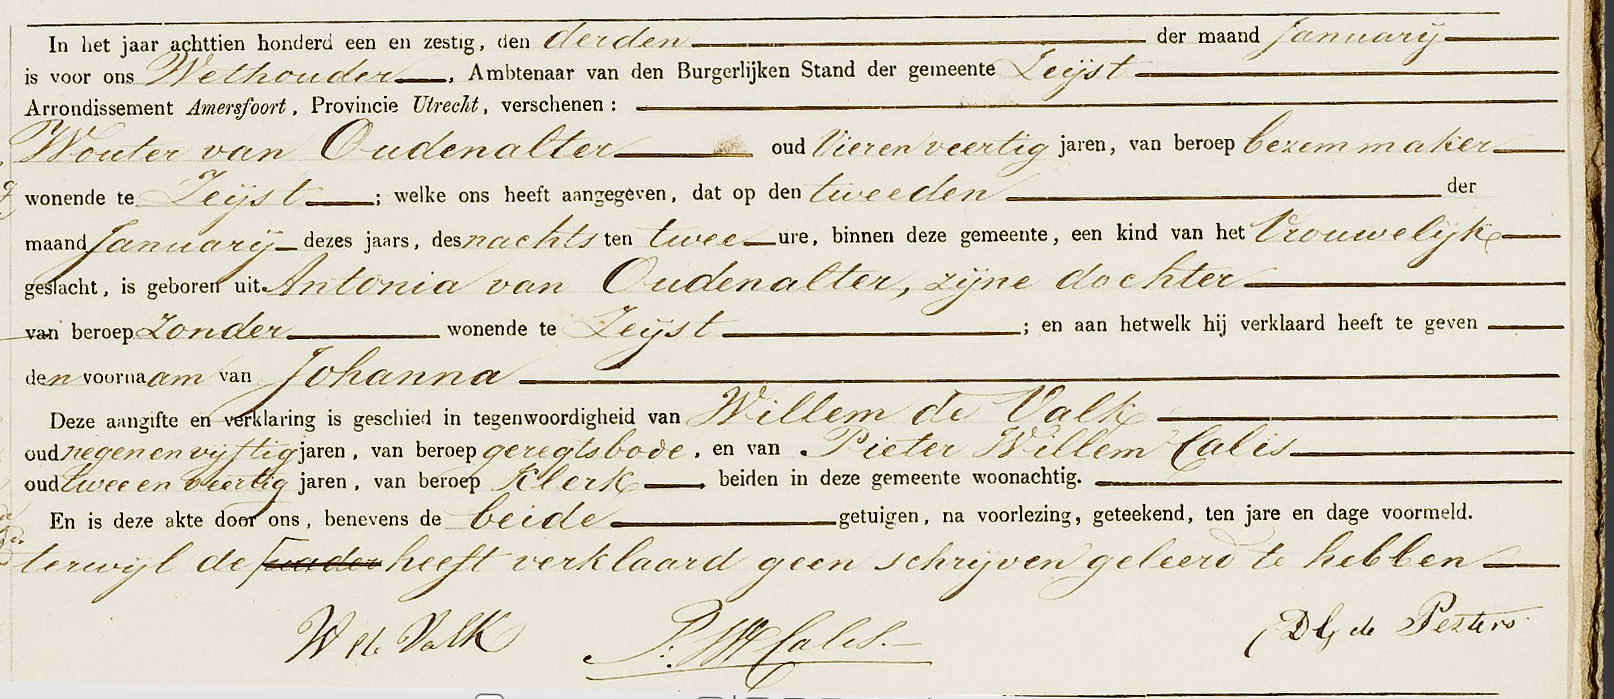 In het jaar achttien honderd een en zestig, den derden der maand January
is voor ons Wethouder, Ambtenaar van den Burgerlijken Stand der gemeente Zeijst
Arrondissement Amersfoort, Provincie Utrecht, verschenen :
Wouter van Oudenalter oud Vieren veertig jaren, van beroep bezemmaker
wonende te Zeijst ; welke ons heeft aangegeven, dat op den tweeden der
maand January dezes jaars, des nachts ten twee ure, binnen deze gemeente, een kind van het Vrouwelijk
geslacht, is geboren uit Antonia van Oudenalter, zijne dochter
van beroep zonder wonende te Zeijst ; en aan hetwelk hij verklaard heeft te geven
den voornaam van Johanna
Deze aangifte en verklaring is geschied in tegenwoordigheid van Willem de Valk
oud negen en vijftig jaren, van beroep geregtsbode, en van Pieter Willem Calis
oud twee en veertig jaren, van beroep Klerk, beiden in deze gemeente woonachtig.
En is deze akte door ons, benevens de beide getuigen, na voorlezing, geteekend, ten jare en dage voormeld.
terwijl de vader heeft verklaard geen schrijven geleerd te hebben
W de Valk P. W Calis. de Pesters